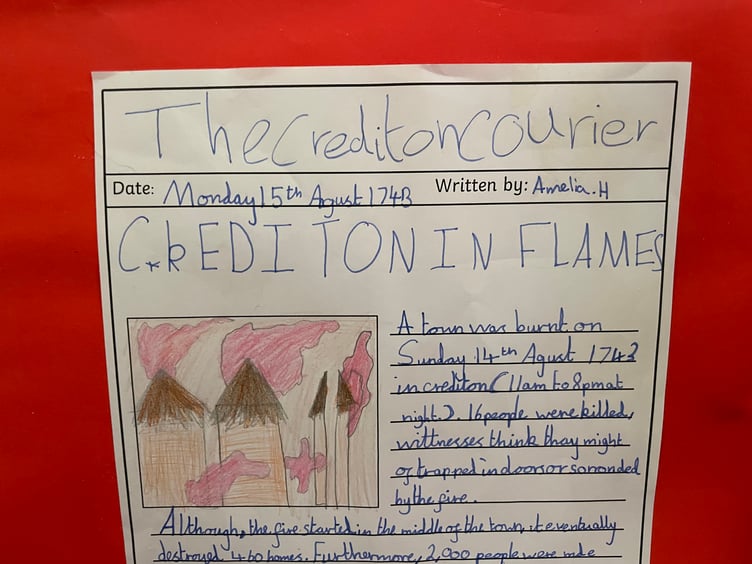 The Crediton Courier
Date: Monday 15th Agust 1743 Written by: Amelia.H
CREDITON IN FLAMES
A town was burnt on
Sunday 14th Agust 1743
in crediton (11am to 8pm at
night.). 16 people were killed,
wittnesses think thay might
of trapped indoors or soronded
by the fire.
Although, the fire started in the middle of the town, it eventually
destroyed 460 homes. Furthermore, 2,000 people were made